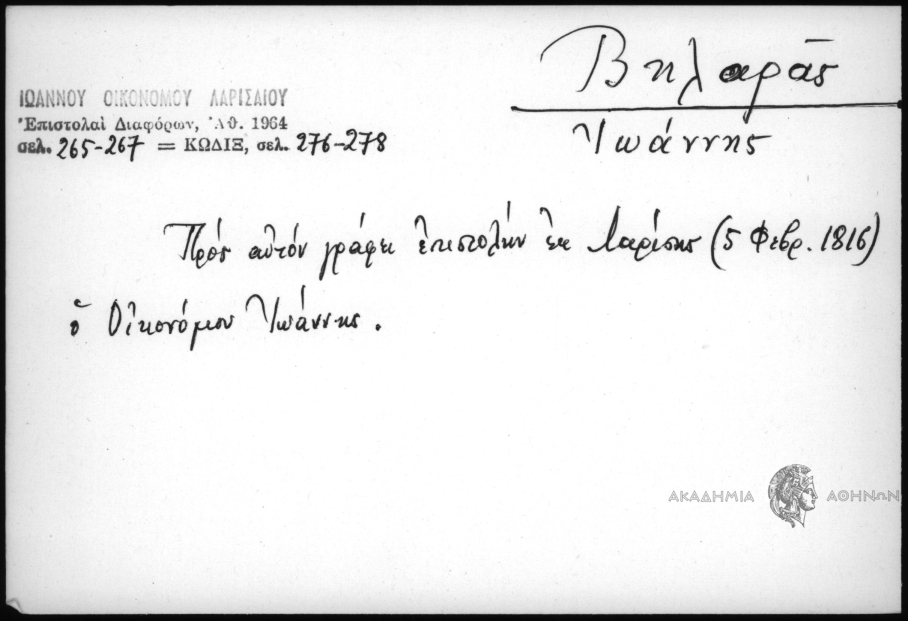 Βηλαρᾶς
Ἰωάννης
ΙΩΑΝΝΟΥ ΟΙΚΟΝΟΜΟΥ ΛΑΡΙΣΑΙΟΥ
Ἐπιστολαὶ Διαφόρων, Ἀθ. 1964
σελ. 265-267 = ΚΩΔΙΞ, σελ. 276-278
Πρός αὐτόν γράφει ἐπιστολήν ἐκ Λαρίσης (5 Φεβρ. 1816)
ὁ Οἰκονόμου Ἰωάννης.
ΑΚΑΔΗΜΙΑ ΑΘΗΝΩΝ